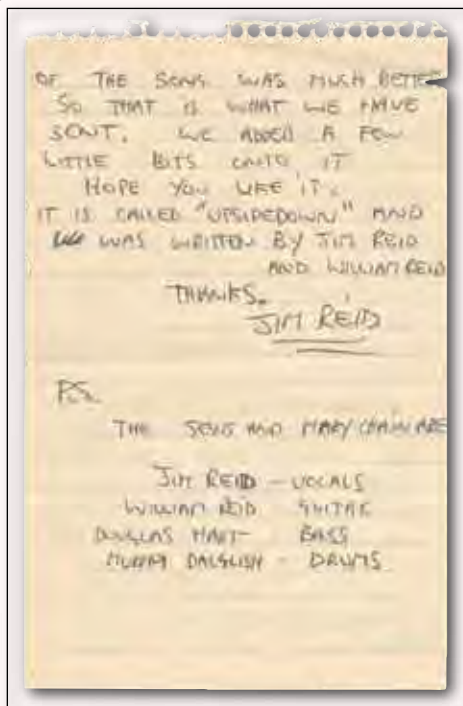 OF THE SONG WAS MUCH BETTER
SO THAT IS WHAT WE HAVE
SENT. WE ADDED A FEW
LITTLE BITS ONTO IT
HOPE YOU LIKE IT.
IT IS CALLED "UPSIDEDOWN" AND
WAS WRITTEN BY JIM REID
AND WILLIAM REID
THANKS.
JIM REID
P.S.
THE JESUS AND MARY CHAIN ARE
JIM REID - VOCALS
WILLIAM REID GUITAR
DOUGLAS HART - BASS
MURRAY DALGLISH - DRUMS